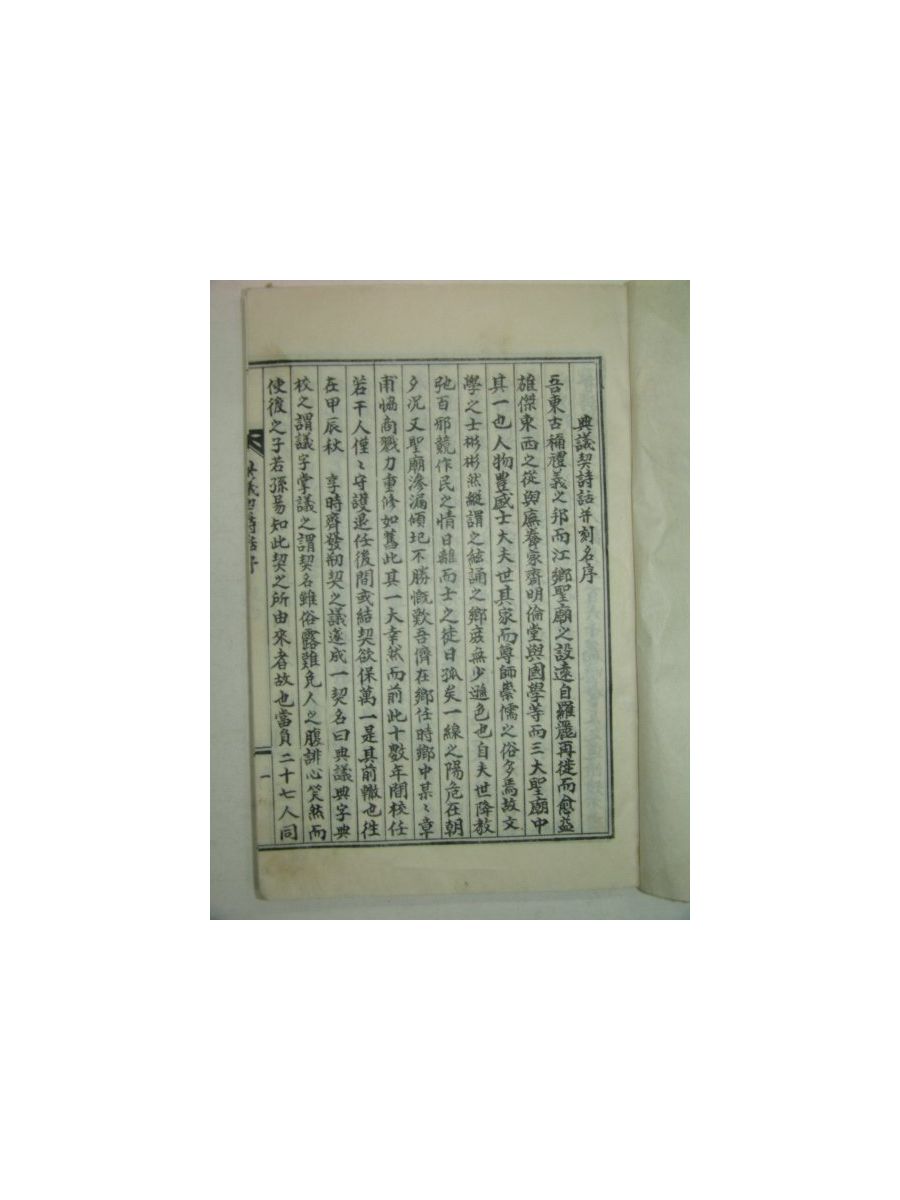 典議契詩話并刻名序
吾東古稱禮義之邦而江鄉聖廟之設遠自羅麗再徙而愈益
雄傑東西之從與廡養家齋明倫堂與國學等而三大聖廟中
其一也人物豊盛士大夫世其家而尊師崇儒之俗多焉故文
學之士彬彬然縱謂之絃誦之鄉庶無少遜色也自夫世降教
弛百邪競作民之情日離而士之徒日孤矣一線之陽危在朝
夕况又聖廟滲漏傾圮不勝慨歎吾儕在鄉任時鄉中某〻章
甫恊商戮力重修如舊此其一大幸然而前此十數年間校任
若干人僅〻守護退任後間或結契欲保萬一是其前轍也徃
在甲辰秋 享時齊發刱契之議遂成一契名曰典議典字典
校之謂議字掌議之謂契名雖俗露難免人之腹誹心笑然而
使後之子若孫易知此契之所由來者故也當負二十七人同
典議契詩話序
一